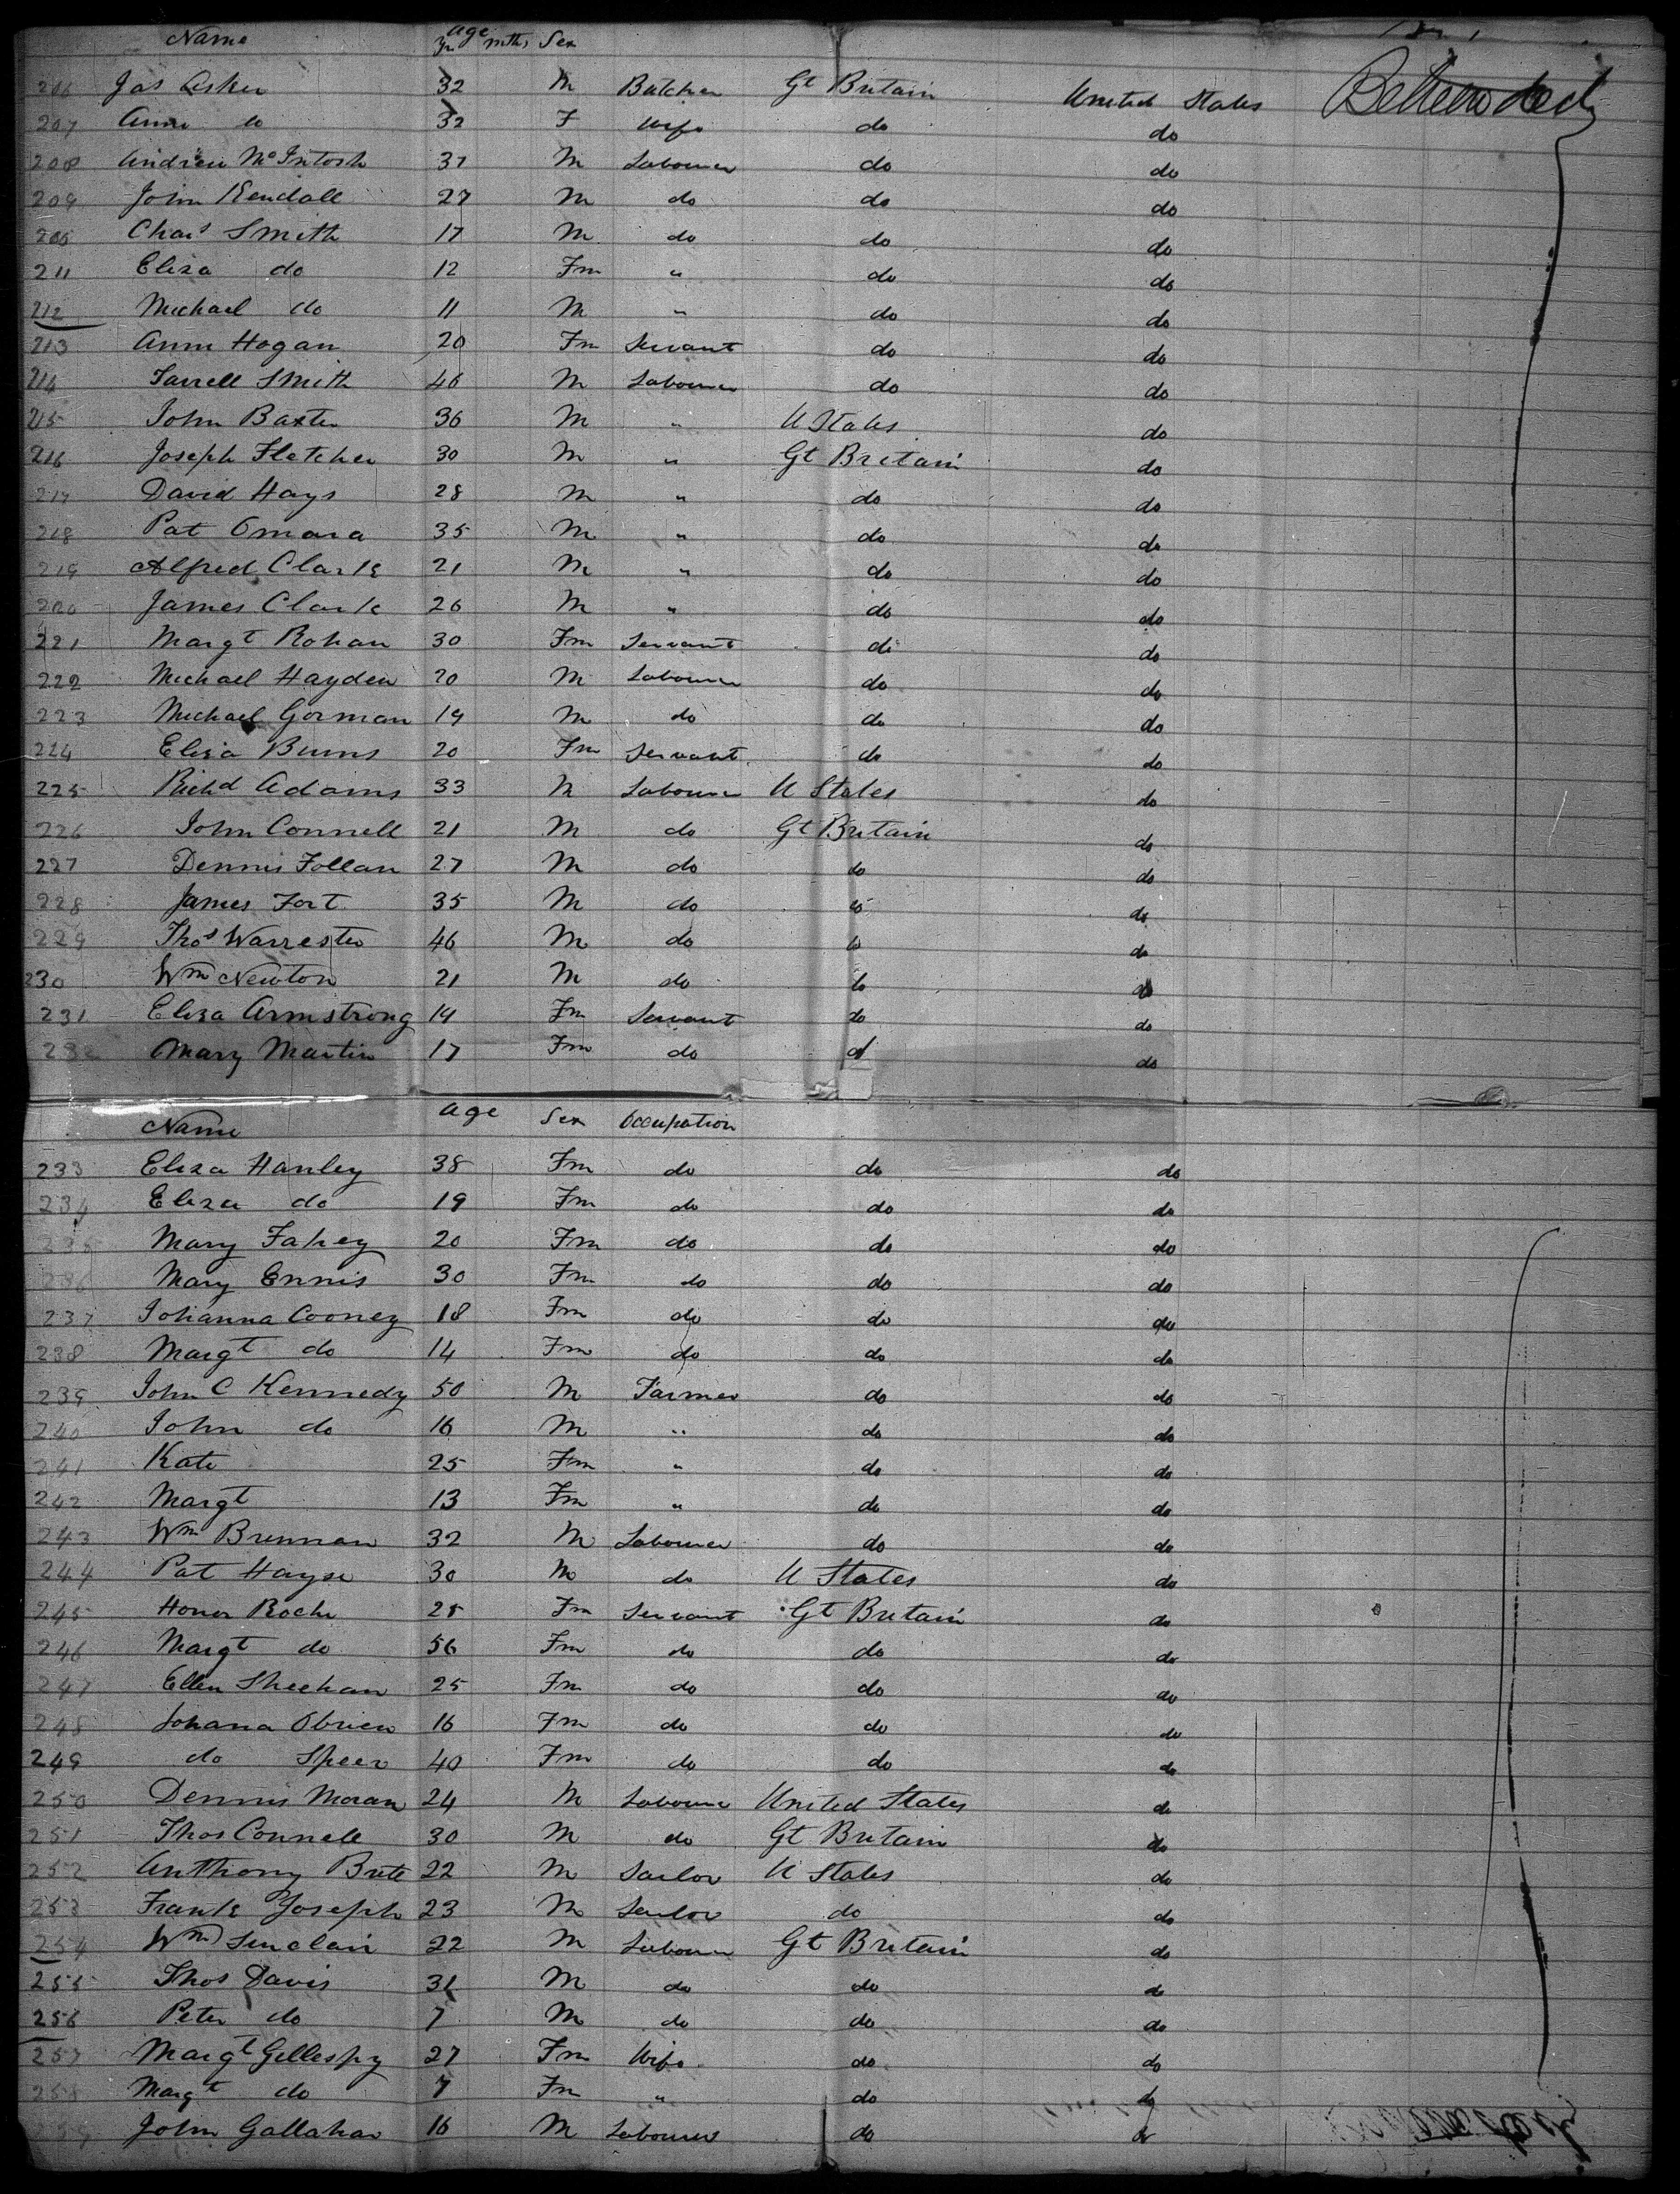 Name Age yr mths Sex
206 Jas Asker 32 M Butcher Gt Britain United States Between decks
207 Anne do 32 F Wife do do
208 Andrew McIntosh 37 M Labourer do do
209 John Kendall 27 M do do do
Chas Smith 17 M do do do
211 Eliza do 12 Fm " do do
212 Michael do 11 M " do do
213 Ann Hogan 20 Fm Servant do do
214 Farrell Smith 46 M Labourer do do
215 John Baxter 36 M " U States do
216 Joseph Fletcher 30 M " Gt Britain do
217 David Hays 28 M " do do
218 Pat Omara 35 M " do do
219 Alfred Clark 21 M " do do
220 James Clark 26 M " do do
221 Margt Rohan 30 Fm Servant do do
222 Michael Hayden 20 M Labourer do do
223 Michael Gorman 19 M do do do
224 Eliza Burns 20 Fm Servant do do
225 Richd Adams 33 M Labourer U States do
226 John Connell 21 M do Gt Britain do
227 Dennis Follan 27 M do do do
228 James Fort 35 M do do do
229 Thos Warrester 46 M do do do
230 Wm Newton 21 M do do do
231 Eliza Armstrong 19 Fm Servant do do
232 Mary Martin 17 Fm do do do
Name Age Sex Occupation
233 Eliza Hanley 38 Fm do do do
234 Eliza do 19 Fm do do do
235 Mary Fahey 20 Fm do do do
236 Mary Ennis 30 Fm do do do
237 Johanna Cooney 18 Fm do do do
238 Margt do 14 Fm do do do
239 John C Kennedy 50 M Farmer do do
240 John do 16 M " do do
241 Kate 25 Fm " do do
242 Margt 13 Fm " do do
243 Wm Brennan 32 M Labourer do do
244 Pat Hayse 30 M do U States do
245 Honor Roche 25 Fm Servant Gt Britain do
246 Margt do 56 Fm do do do
247 Ellen Sheehan 25 Fm do do do
248 Johana Obrien 16 Fm do do do
249 do Speer 40 Fm do do do
250 Dennis Moran 24 M Labourer United States do
251 Thos Connell 30 M do Gt Britain do
252 Anthony Bute 22 M Sailor U States do
253 Frank Joseph 23 M Sailor do do
254 Wm Sinclair 22 M Labourer Gt Britain do
255 Thos Davis 31 M do do do
256 Peter do 7 M do do do
257 Margt Gillespy 27 Fm Wife do do
258 Margt do 7 Fm " do do
259 John Gallahar 16 M Labourer do do